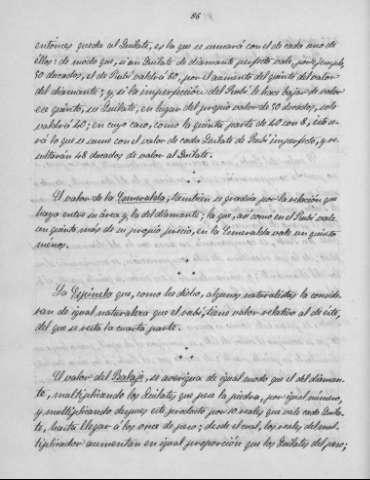 86
entónces queda al Quilate, es la que se sumará con el de cada uno de
ellos: de modo que, si un Quilate de diamante perfecto vale, por ejemplo,
50 ducados, el de Rubí valdrá 60, por el aumento del quinto del valor
del diamante; y si la imperfección del Rubí le hace bajar de valor
ese quinto, su Quilate, en lugar del propio valor de 50 ducados, solo
valdrá 40; en cuyo caso, como la quinta parte de 40 son 8, esto se-
rá lo que se sume con el valor de cada Quilate de Rubí imperfecto, y re-
sultarán 48 ducados de valor al Quilate.
El valor de la Esmeralda, tambien se gradúa por la relación que
haya entre su área y la del diamante; la que, así como en el Rubí vale
un quinto más de su propio precio, en la Esmeralda vale un quinto
menos.
La Espinela que, como les dicho, algunos naturalistas la conside-
ran de igual naturaleza que el rubí, tiene valor relativo al de éste,
del que se resta la cuarta parte.
El valor del Balaje, se averigua de igual modo que el del diaman-
te, multiplicando los Quilates que pesa la piedra, por igual número,
y multiplicando despues este producto por 10 reales que vale cada Quila-
te, hasta llegar á los once de peso; desde el cual, los reales del mul-
tiplicador aumentan en igual proporción que los Quilates del peso;